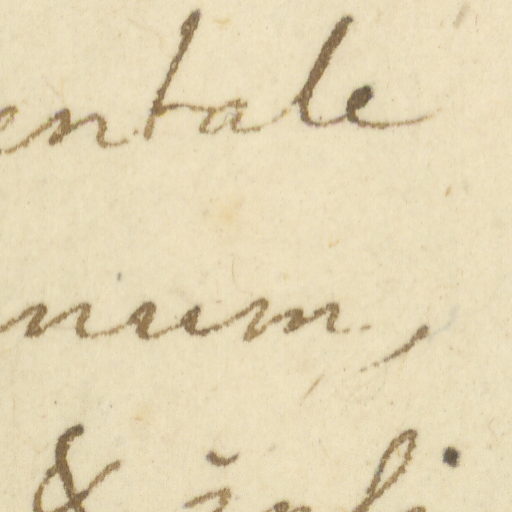 entale
nium,
&